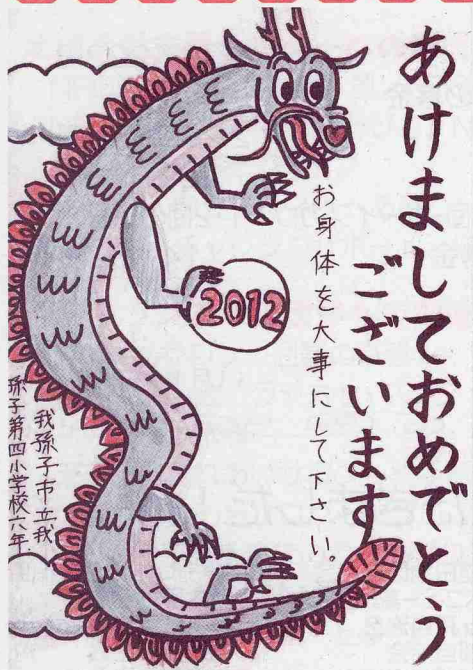 あけましておめでとう
ございます
お身体を大事にして下さい。
2012
我孫子市立我
孫子第四小学校六年.